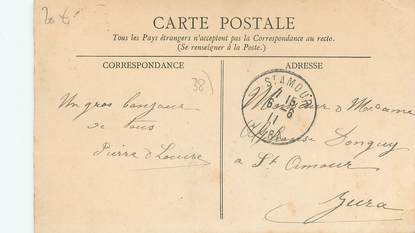 20 €
CARTE POSTALE
Tous les Pays étrangers n'acceptent pas la Correspondance au recto.
(Se renseigner à la Poste.)
CORRESPONDANCE
ADRESSE
38)
Un gros bonjour
de tous
Pierre & Louise
ST AMOUR
15
6
11
Monsieur & Madame
Alphonse Longuy
à St Amour
Jura